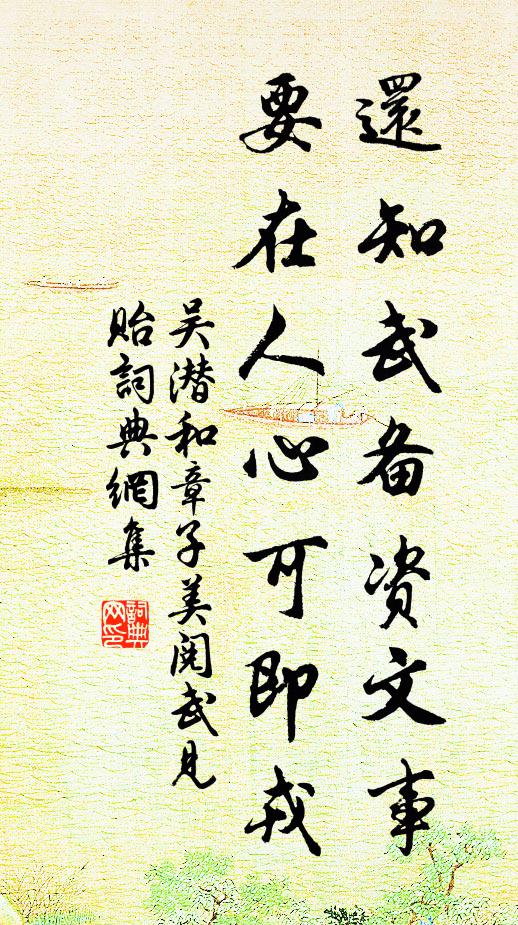 還知武备资文事
要在人心可即戎
吴潜和章子美阅武见
贻詞典網集
詞典网印